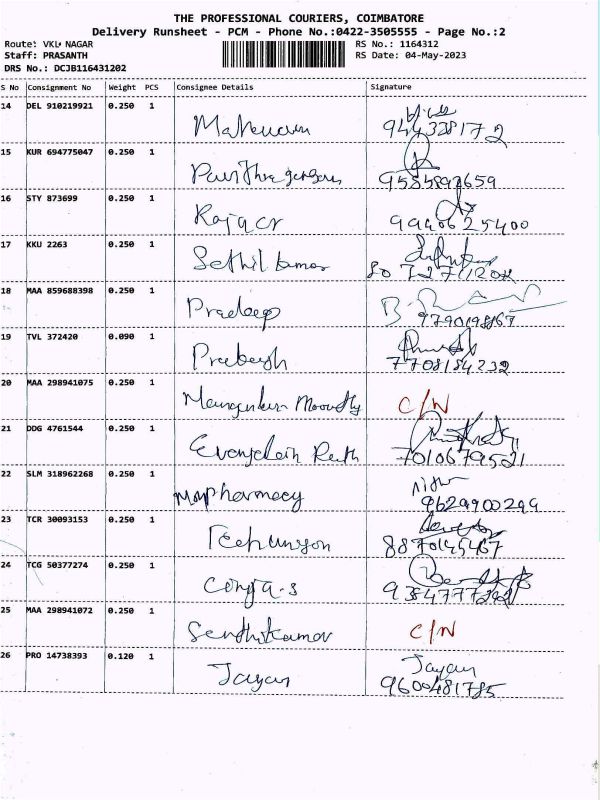 THE PROFESSIONAL COURIERS, COIMBATORE
Delivery Runsheet - PCM - Phone No.:0422-3505555 - Page No.:2
Route: VKL NAGAR RS No.: 1164312
Staff: PRASANTH RS Date: 04-May-2023
DRS No.: DCJB116431202
S No Consignment No Weight PCS Consignee Details Signature
14 DEL 910219921 0.250 1
9443328172
15 KUR 694775047 0.250 1
9585892659
16 STY 873699 0.250 1
Rajacr 9940625400
17 KKU 2263 0.250 1
Sethil kumar
18 MAA 859688398 0.250 1
Pradeep 9790198867
19 TVL 372420 0.090 1
Prabeesh 7708184232
20 MAA 298941075 0.250 1
C/N
21 DDG 4761544 0.250 1
7010679521
22 SLM 318962268 0.250 1
9629900299
23 TCR 30093153 0.250 1
8870145467
24 TCG 50377274 0.250 1
25 MAA 298941072 0.250 1
Senthilkumar C/N
26 PRO 14738393 0.120 1
Jayan Jayan
9600481785